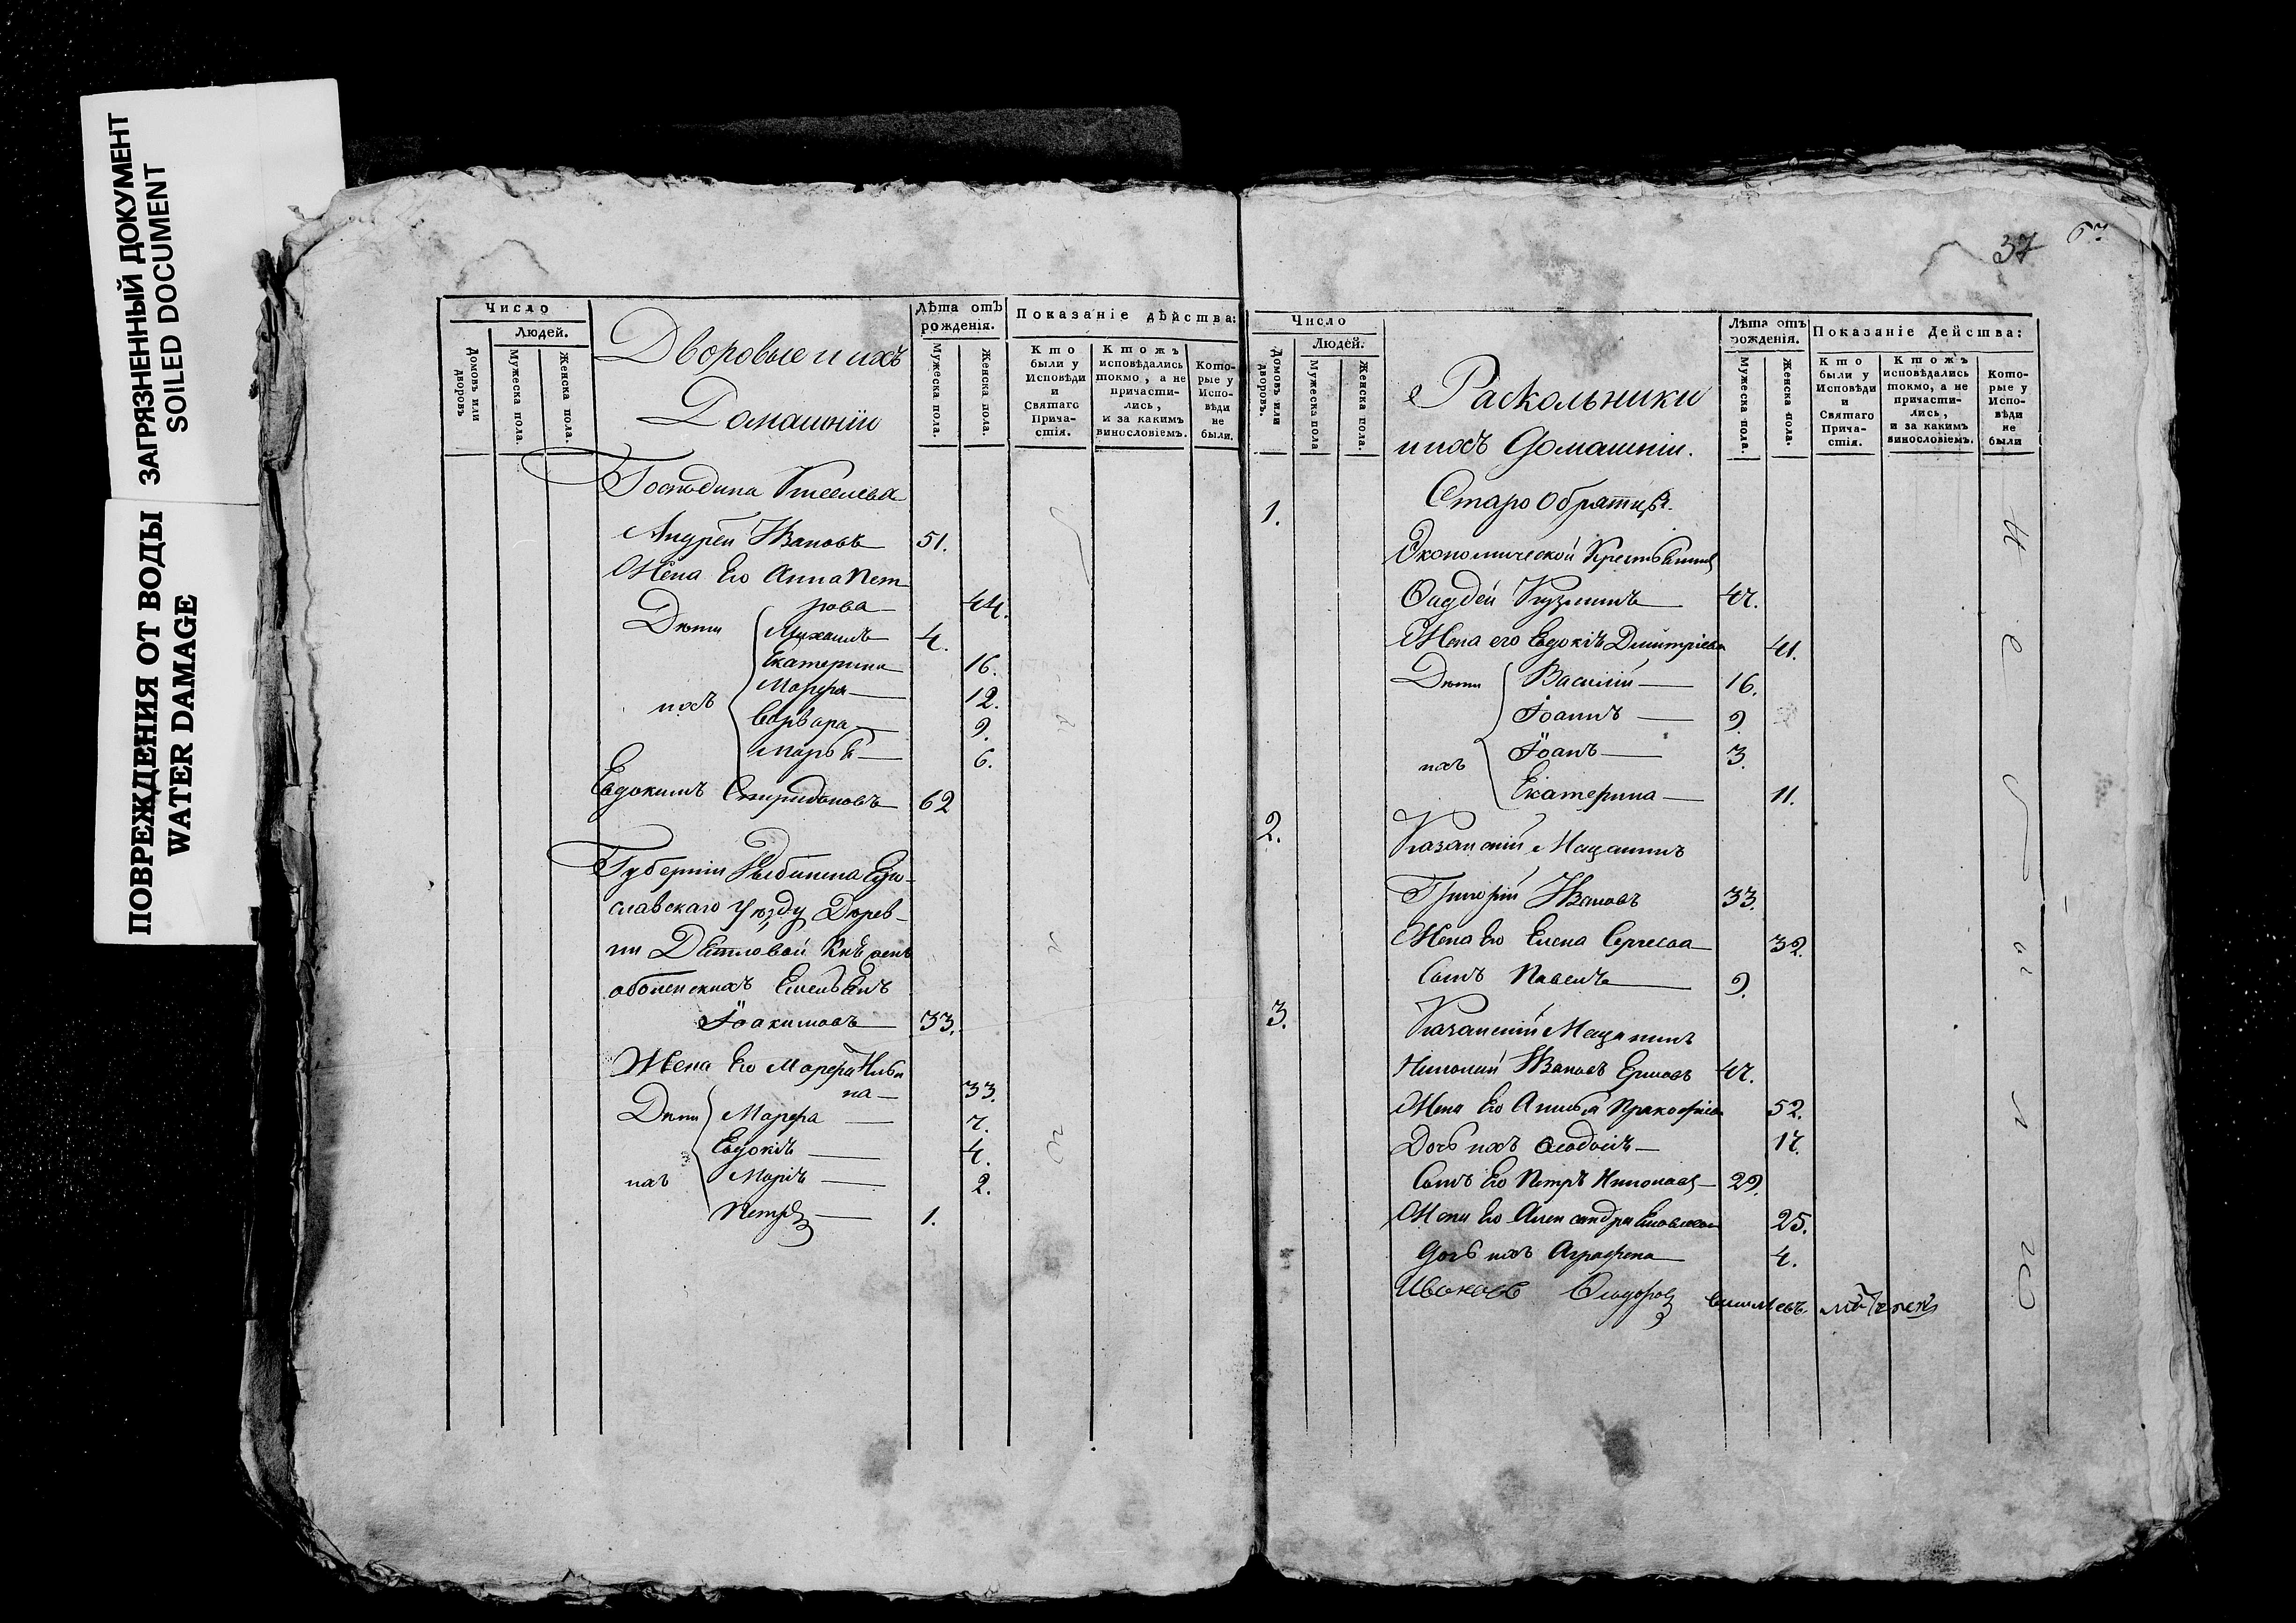 ЗАГРЯЗНЕННЫЙ ДОКУМЕНТ
SOILED DOCUMENT
ПОВРЕЖДЕНИЯ ОТ ВОДЫ
WATER DAMAGE
Число
Людей.
Домовъ или дворовъ
Мужеска пола.
Женска пола.
Дворовые и ихъ
Домашнiи
Лѣта отъ рожденiя.
Мужеска пола.
Женска пола.
Показанiе дѣйства:
Кто были у Исповѣди и Святаго Причастiя.
Ктожъ исповѣдались токмо, а не причастились, и за какимъ винословiемъ.
Которые у Исповѣди не были.
Господина
Андрей Ивановъ 51.
Жена Его Анна Пет
рова 44.
Дѣти Михаилъ 4.
Екатерина 16.
Марфа 12.
ихъ Варвара 9.
Марья 6.
Евдокимъ Спиридоновъ 62
Губернiи
славскаго уѣзду Дерев-
ни
Емельянъ
Iоакимовъ 33.
Жена Его Марфа Ильи
на 33.
Дѣти Марфа 7.
Евдокiя 4.
ихъ Марiя 2.
Петръ 1.
37
Число
Людей.
Домовъ или дворовъ.
Мужеска пола
Женска пола.
Раскольники
и ихъ Домашнiи.
Лѣта отъ рожденiя.
Мужеска пола.
Женска пола.
Показанiе Дейсшва:
Кто были у Исповѣди и Святаго Причастiя.
Ктожъ исповѣдались токмо, а не причастились, и за какимъ винословiемъ.
Которые у Исповѣди не были
1. Старо Обрятцы
Экономической Крестьянинъ
Фаддей Кузминъ 47.
Жена его Евдокiя Дмитрiева 41.
Дѣти Василiй 16.
Iоаннъ 9.
ихъ Iоанъ 3.
Екатерина 11.
2. Казанскiй Мещанинъ
Григорiй Ивановъ 33.
Жена Его Елена Сергеева 32.
Сынъ Павелъ 9.
3. Казанскiй Мещанинъ
Николай Ивановъ 47.
Жена Его Прокофiева 52.
Дочь ихъ 17.
Сынъ Его Петръ Николаевъ 29.
Жена Его Александра 25.
Дочь ихъ Аграфена 4.